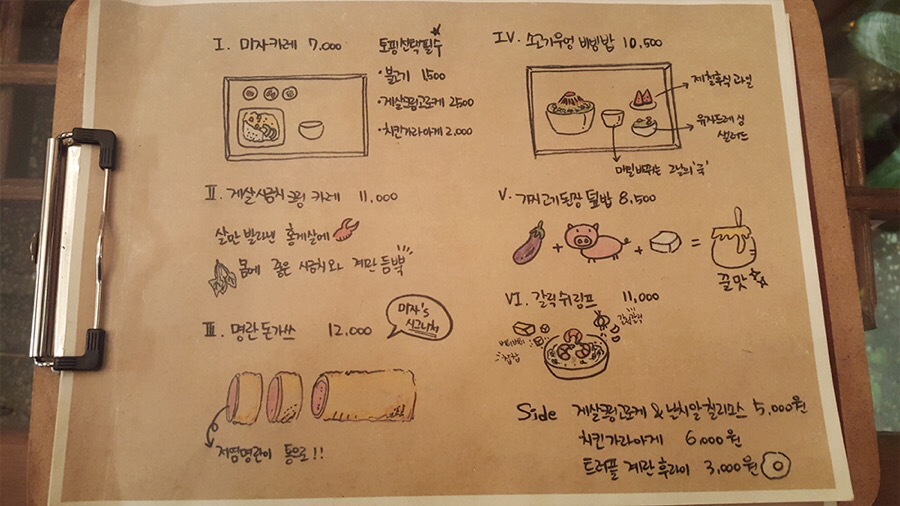 I. 미자카레 7,000
토핑선택필수
· 불고기 1,500
· 게살크림고로케 2,500
· 치킨가라아게 2,000
II. 게살시금치크림 카레 11,000
살만 발라낸 홍게살에
몸에 좋은 시금치와 계란 듬뿍
III. 명란돈가쓰 12,000
미자's
시그니처
저염명란이 통으로!!
IV. 소고기우엉 비빔밥 10,500
제철후식 과일
유자드레싱
샐러드
매일바뀌는 그날의 '국'
V. 가지고기된장 덮밥 8,500
+ + =
꿀맛
VI. 갈릭쉬림프 11,000
Side 게살크림고로케 & 날치알 칠리소스 5,000원
치킨가라아게 6,000원
트러플 계란후라이 3,000원